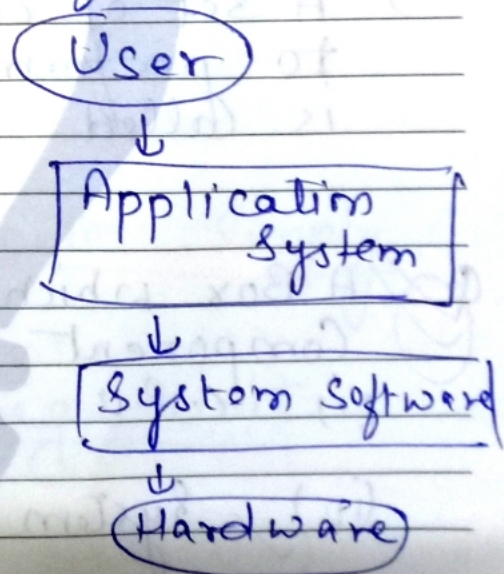 User
↓
Application
System
↓
System Software
↓
Hardware